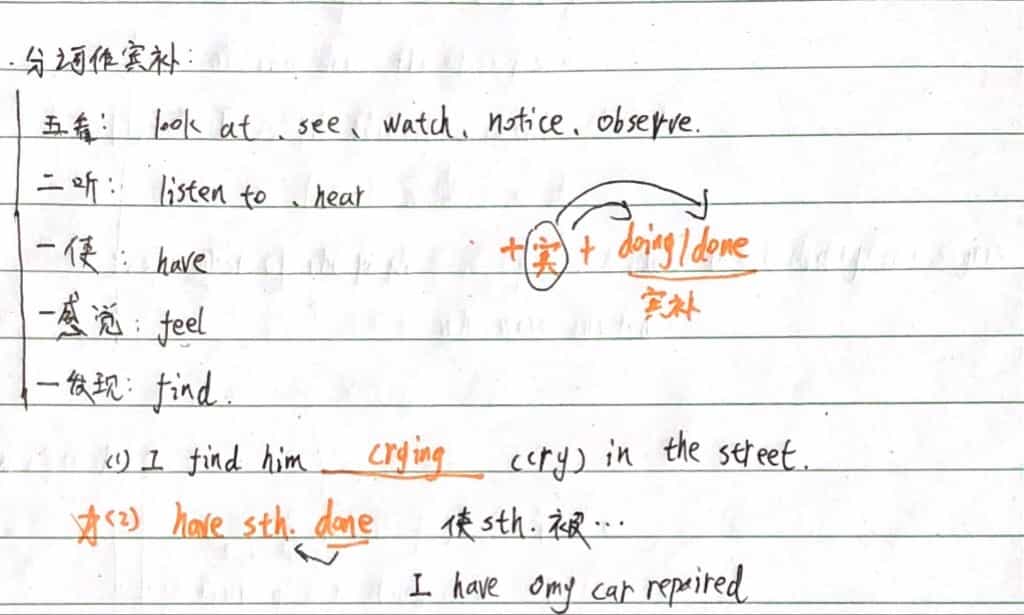 ·分词作宾补:
五看: look at、see、watch、notice、observe.
二听: listen to、hear
一使: have
+宾+doing/done
宾补
一感觉: feel
一发现: find.
(1) I find him crying (cry) in the street.
(2) have sth. done 使sth.被…
I have my car repaired